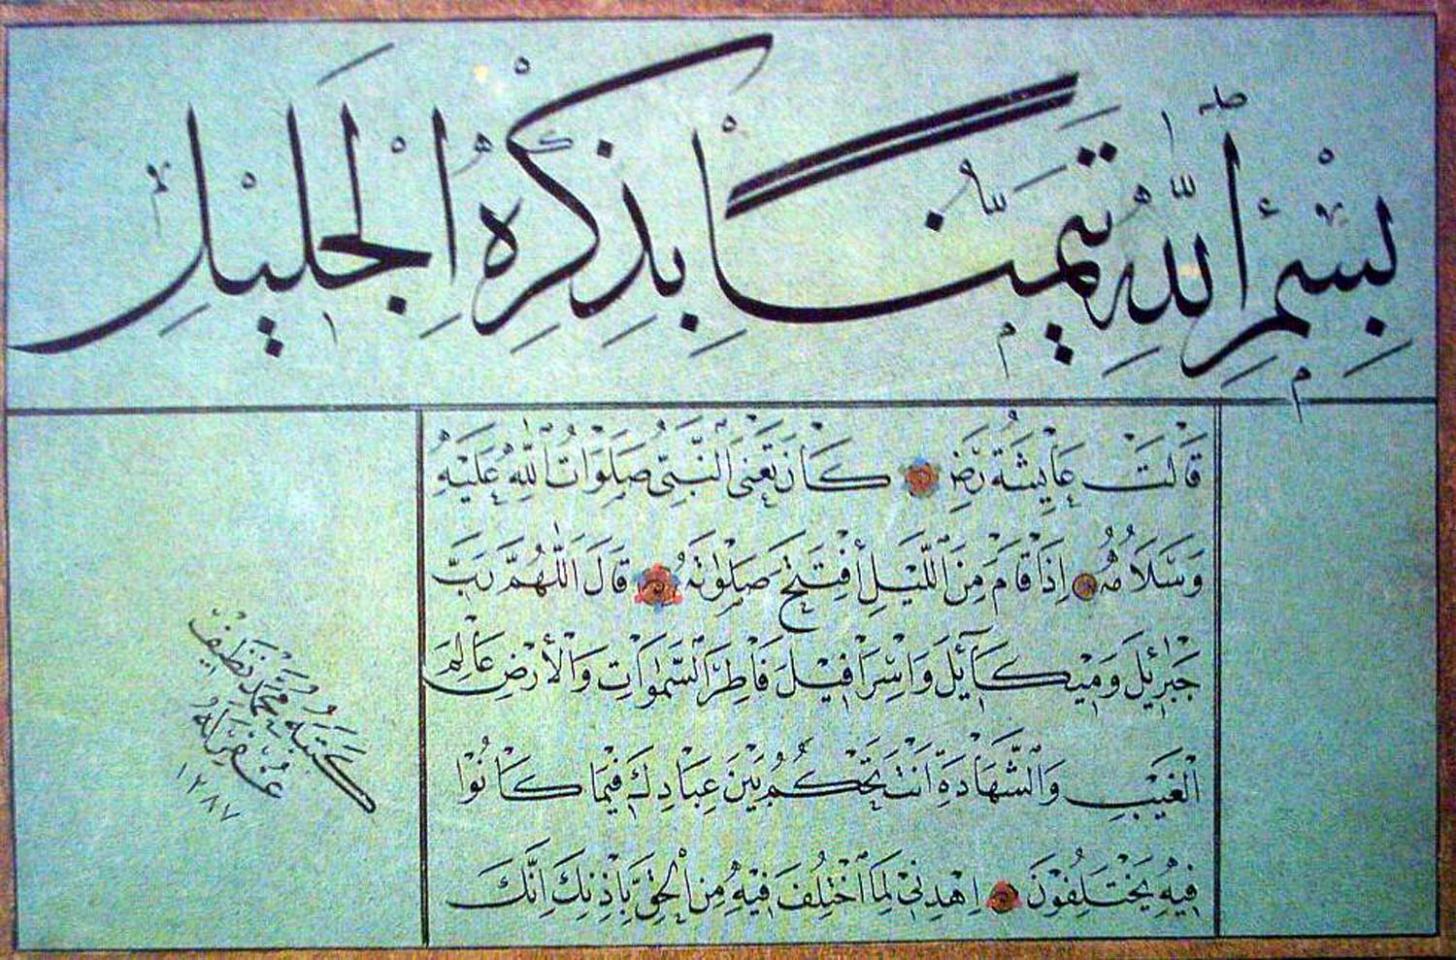 بِسْمِ اللّٰهِ تَيَمُّنًا بِذِكْرِهِ الْجَلِيلِ
قَالَتْ عَايِشَةُ رَضِ كَانَ تَعْنِى النَّبِىَّ صَلَوَاتُ اللّٰهِ عَلَيْهِ
وَسَلَامُهُ اِذَا قَامَ مِنَ اللَّيْلِ اَفْتَتِحُ صَلٰوتَهُ قَالَ اللّٰهُمَّ رَبَّ
جَبْرَئِيلَ وَمِيكَآئِيلَ وَاِسْرَافِيلَ فَاطِرَ السَّمٰوَاتِ وَالْاَرْضِ عَالِمَ
الْغَيْبِ وَالشَّهَادَةِ اَنْتَ تَحْكُمُ بَيْنَ عِبَادِكَ فِيمَا كَانُوا
فِيهِ يَخْتَلِفُونَ اِهْدِنِى لِمَا اخْتُلِفَ فِيهِ مِنَ الْحَقِّ بِاِذْنِكَ اِنَّكَ
كَتَبَهُ مُحَمَّد نَظِيف
غُفِرَ لَهُ
١٢٨٧